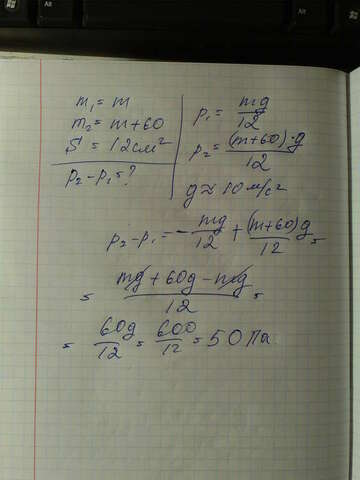 m₁ = m
m₂ = m+60
S = 12см²
p₂-p₁=?
p₁ = mg/12
p₂ = (m+60)·g/12
g ≈ 10 м/с²
p₂-p₁ = -mg/12 + (m+60)g/12 =
= mg + 60g - mg/12 =
= 60g/12 = 600/12 = 50 Па